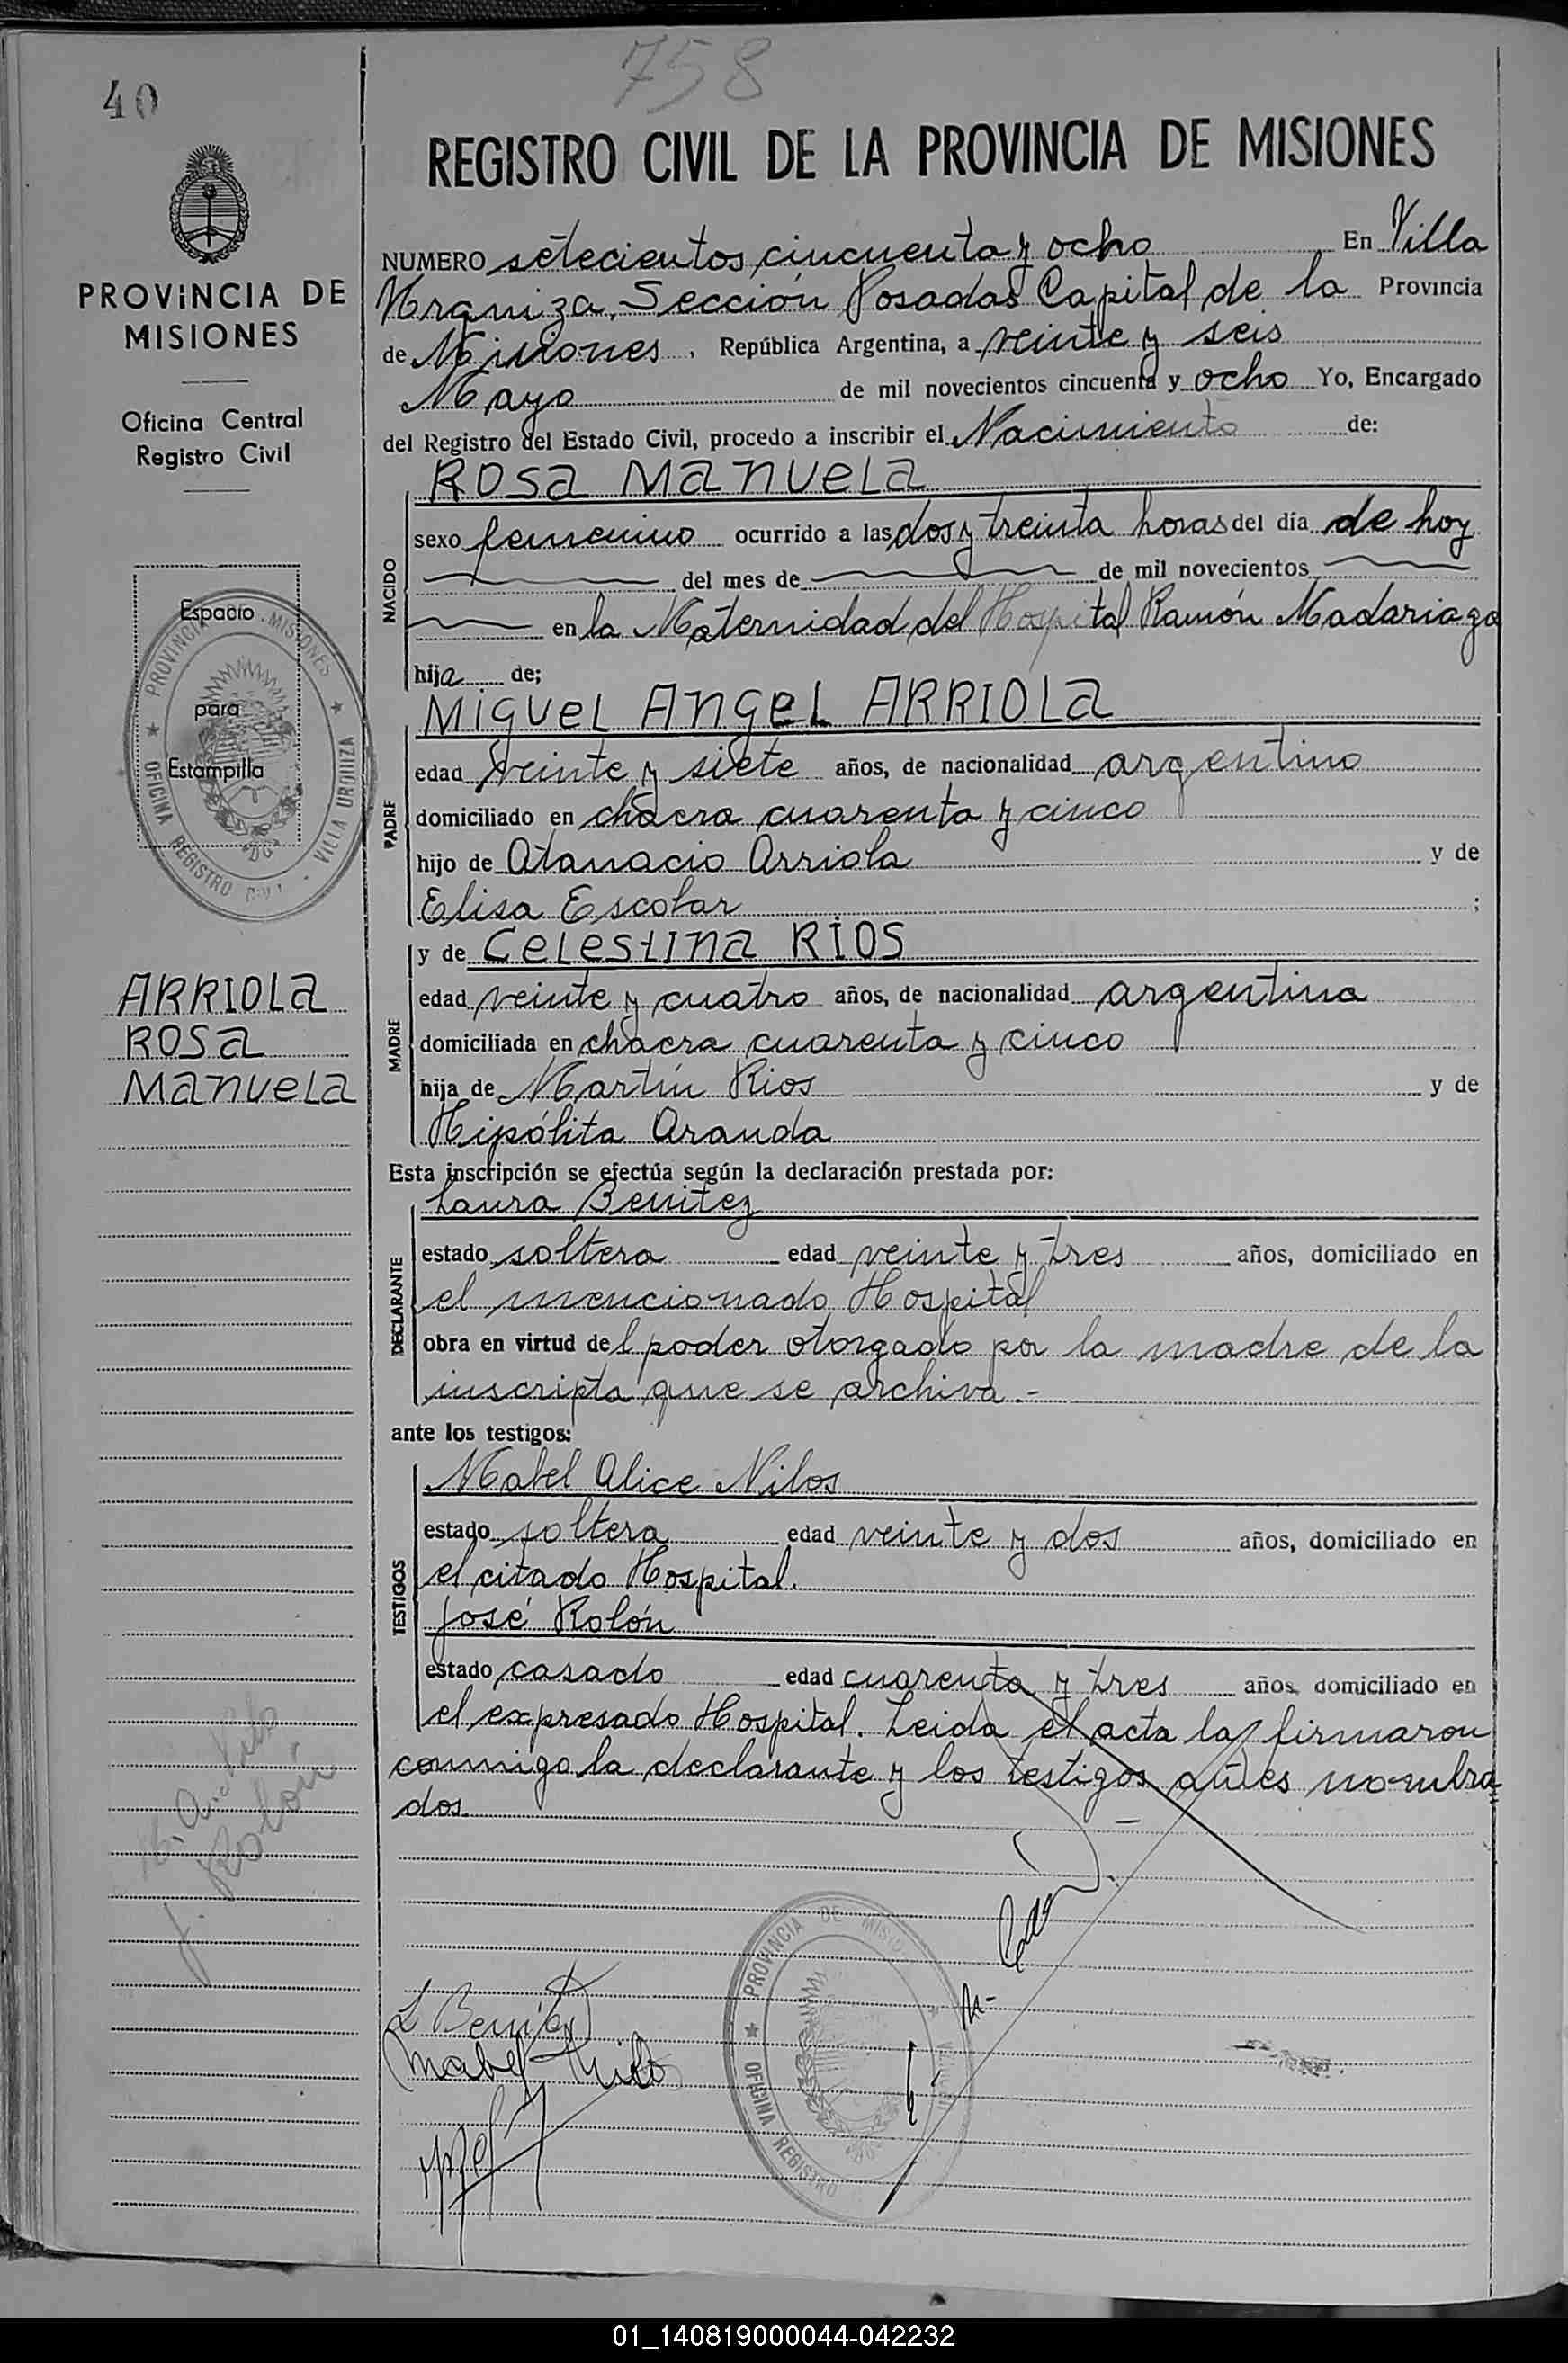 40
758
REGISTRO CIVIL DE LA PROVINCIA DE MISIONES
PROVINCIA DE
MISIONES
Oficina Central
Registro Civil
Espacio
para
Estampilla
PROVINCIA MISIONES
OFICINA REGISTRO CIVIL - VILLA URQUIZA
ARRIOLA
ROSA
MANUELA
J. Rolón
NUMERO setecientos cincuenta y ocho En Villa
Urquiza, Sección Posadas Capital de la Provincia
de Misiones, República Argentina, a veinte y seis
Mayo de mil novecientos cincuenta y ocho Yo, Encargado
del Registro del Estado Civil, procedo a inscribir el Nacimiento de:
ROSA MANUELA
NACIDO
sexo femenino ocurrido a las dos y treinta horas del día de hoy
del mes de de mil novecientos
en la Maternidad del Hospital Ramón Madariaga
hija de;
MIGUEL ANGEL ARRIOLA
PADRE
edad veinte y siete años, de nacionalidad argentino
domiciliado en chacra cuarenta y cinco
hijo de Atanacio Arriola y de
Elisa Escobar ;
y de CELESTINA RÍOS
MADRE
edad veinte y cuatro años, de nacionalidad argentina
domiciliada en chacra cuarenta y cinco
hija de Martín Rios y de
Hipólita Aranda
Esta inscripción se efectúa según la declaración prestada por:
Laura Benitez
DECLARANTE
estado soltera edad veinte y tres años, domiciliado en
el mencionado Hospital
obra en virtud del poder otorgado por la madre de la
inscripta que se archiva.-
ante los testigos:
Mabel Alice Nilos
TESTIGOS
estado soltera edad veinte y dos años, domiciliado en
el citado Hospital.
José Rolón
estado casado edad cuarenta y tres años, domiciliado en
el expresado Hospital. Leida el acta la firmaron
conmigo la declarante y los testigos antes nombra
dos.
PROVINCIA DE MISIO
OFICINA REGISTRO
L Benitez
Mabel
01_140819000044-042232